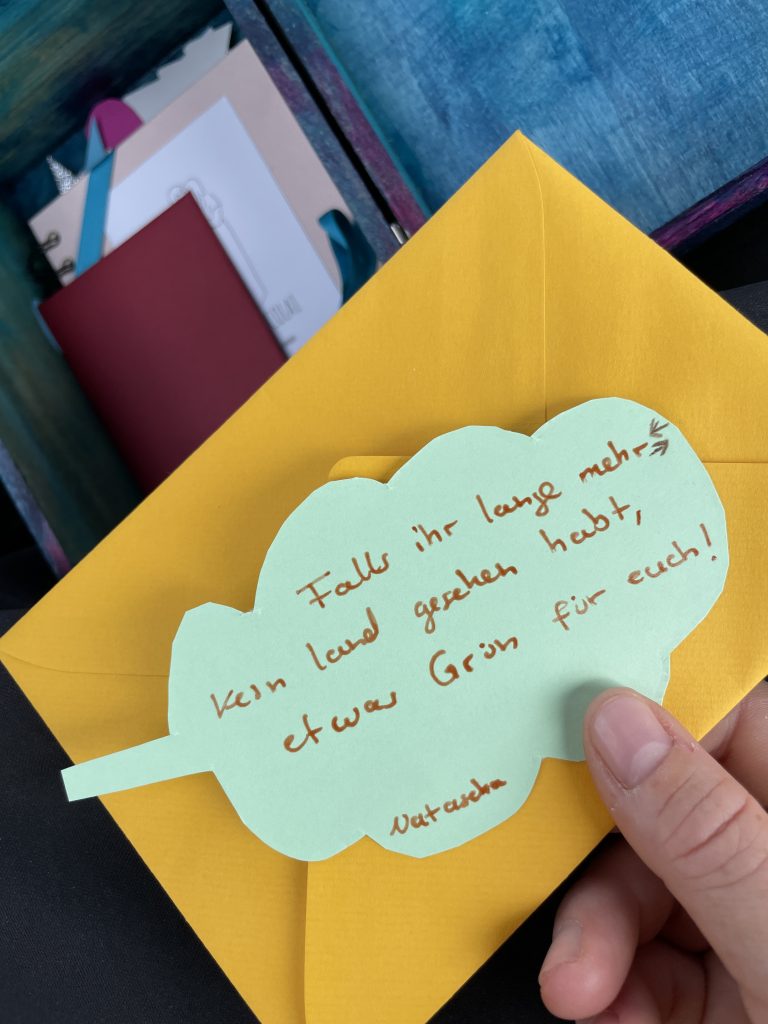 Falls ihr lange mehr
kein land gesehen habt,
etwas Grün für euch!
Natascha